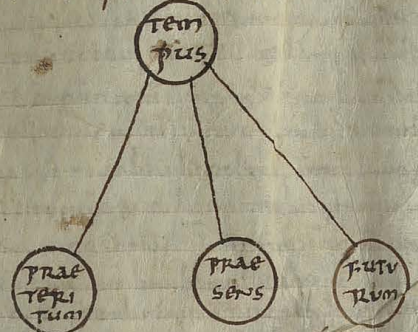 Tem
pus
prae
teri
tum
prae
sens
futu
rum